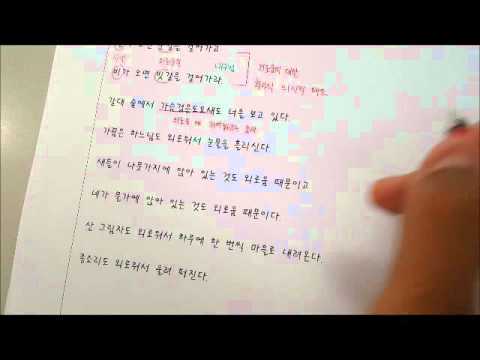 오면 눈길을 걸어가고
대구법 외로움에 대한
비가 오면 빗길을 걸어가라.
태도
갈대 숲에서 가슴검은도요새도 너를 보고 있다.
가끔은 하느님도 외로워서 눈물을 흘리신다.
새들이 나뭇가지에 앉아 있는 것도 외로움 때문이고
네가 물가에 앉아 있는 것도 외로움 때문이다.
산 그림자도 외로워서 하루에 한 번씩 마을로 내려온다.
종소리도 외로워서 울려 퍼진다.